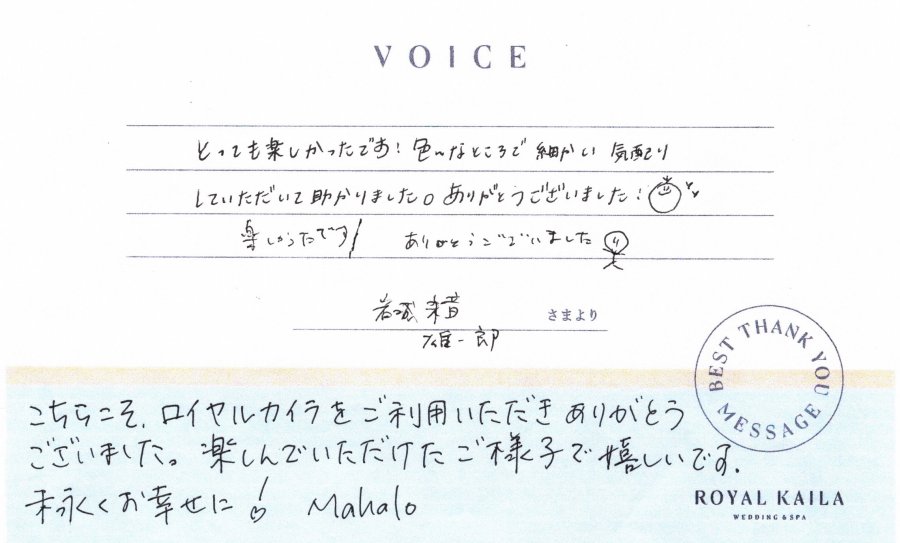 VOICE
とっても楽しかったです!色々なところで細かい気配り
していただいて助かりました。ありがとうございました!
楽しかったです! ありがとうございました
さまより
雄一郎
BEST THANK YOU MESSAGE
こちらこそ、ロイヤルカイラをご利用いただきありがとう
ございました。楽しんでいただけたご様子で嬉しいです。
末永くお幸せに! Mahalo
ROYAL KAILA
WEDDING & SPA